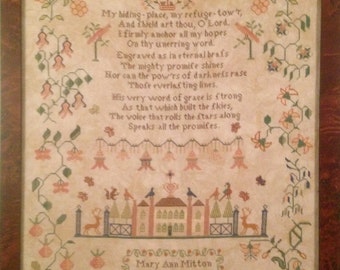 My hiding-place, my refuge-tow'r,
And ſhield art thou, O Lord,
I firmly anchor all my hopes
On thy unerring word.
Engraved as in eternal braſs
The mighty promiſe shines
Nor can the pow'rs of darkneſs rase
Thoſe everlaſting lines.
His very word of grace is ſtrong
As that which built the ſkies,
The voice that rolls the ſtars along
Speaks all the promiſes.
Mary Ann Mitton